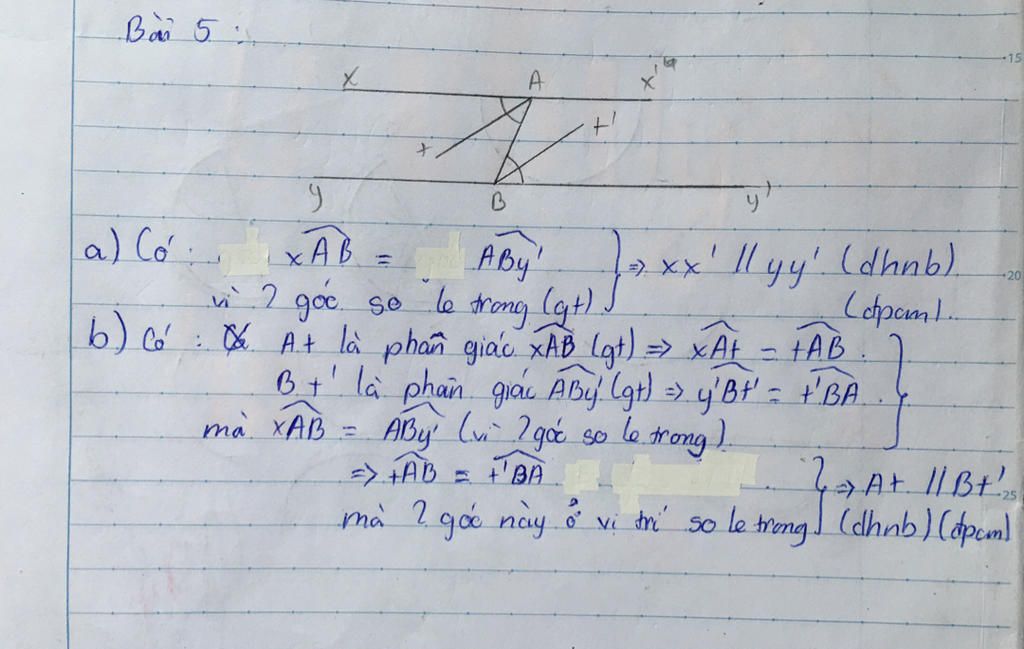 Bài 5 :
x A x'
t t'
y B y'
a) Có : xAB = ABy' } => xx' // yy' (dhnb)
vì 2 góc so le trong (gt) (đpcm).
b) Có : At là phân giác xAB (gt) => xAt = tAB .
Bt' là phân giác ABy' (gt) => y'Bt' = t'BA .
mà xAB = ABy' (vì 2 góc so le trong)
=> tAB = t'BA . } => At // Bt'
mà 2 góc này ở vị trí so le trong (dhnb) (đpcm)
15
20
25